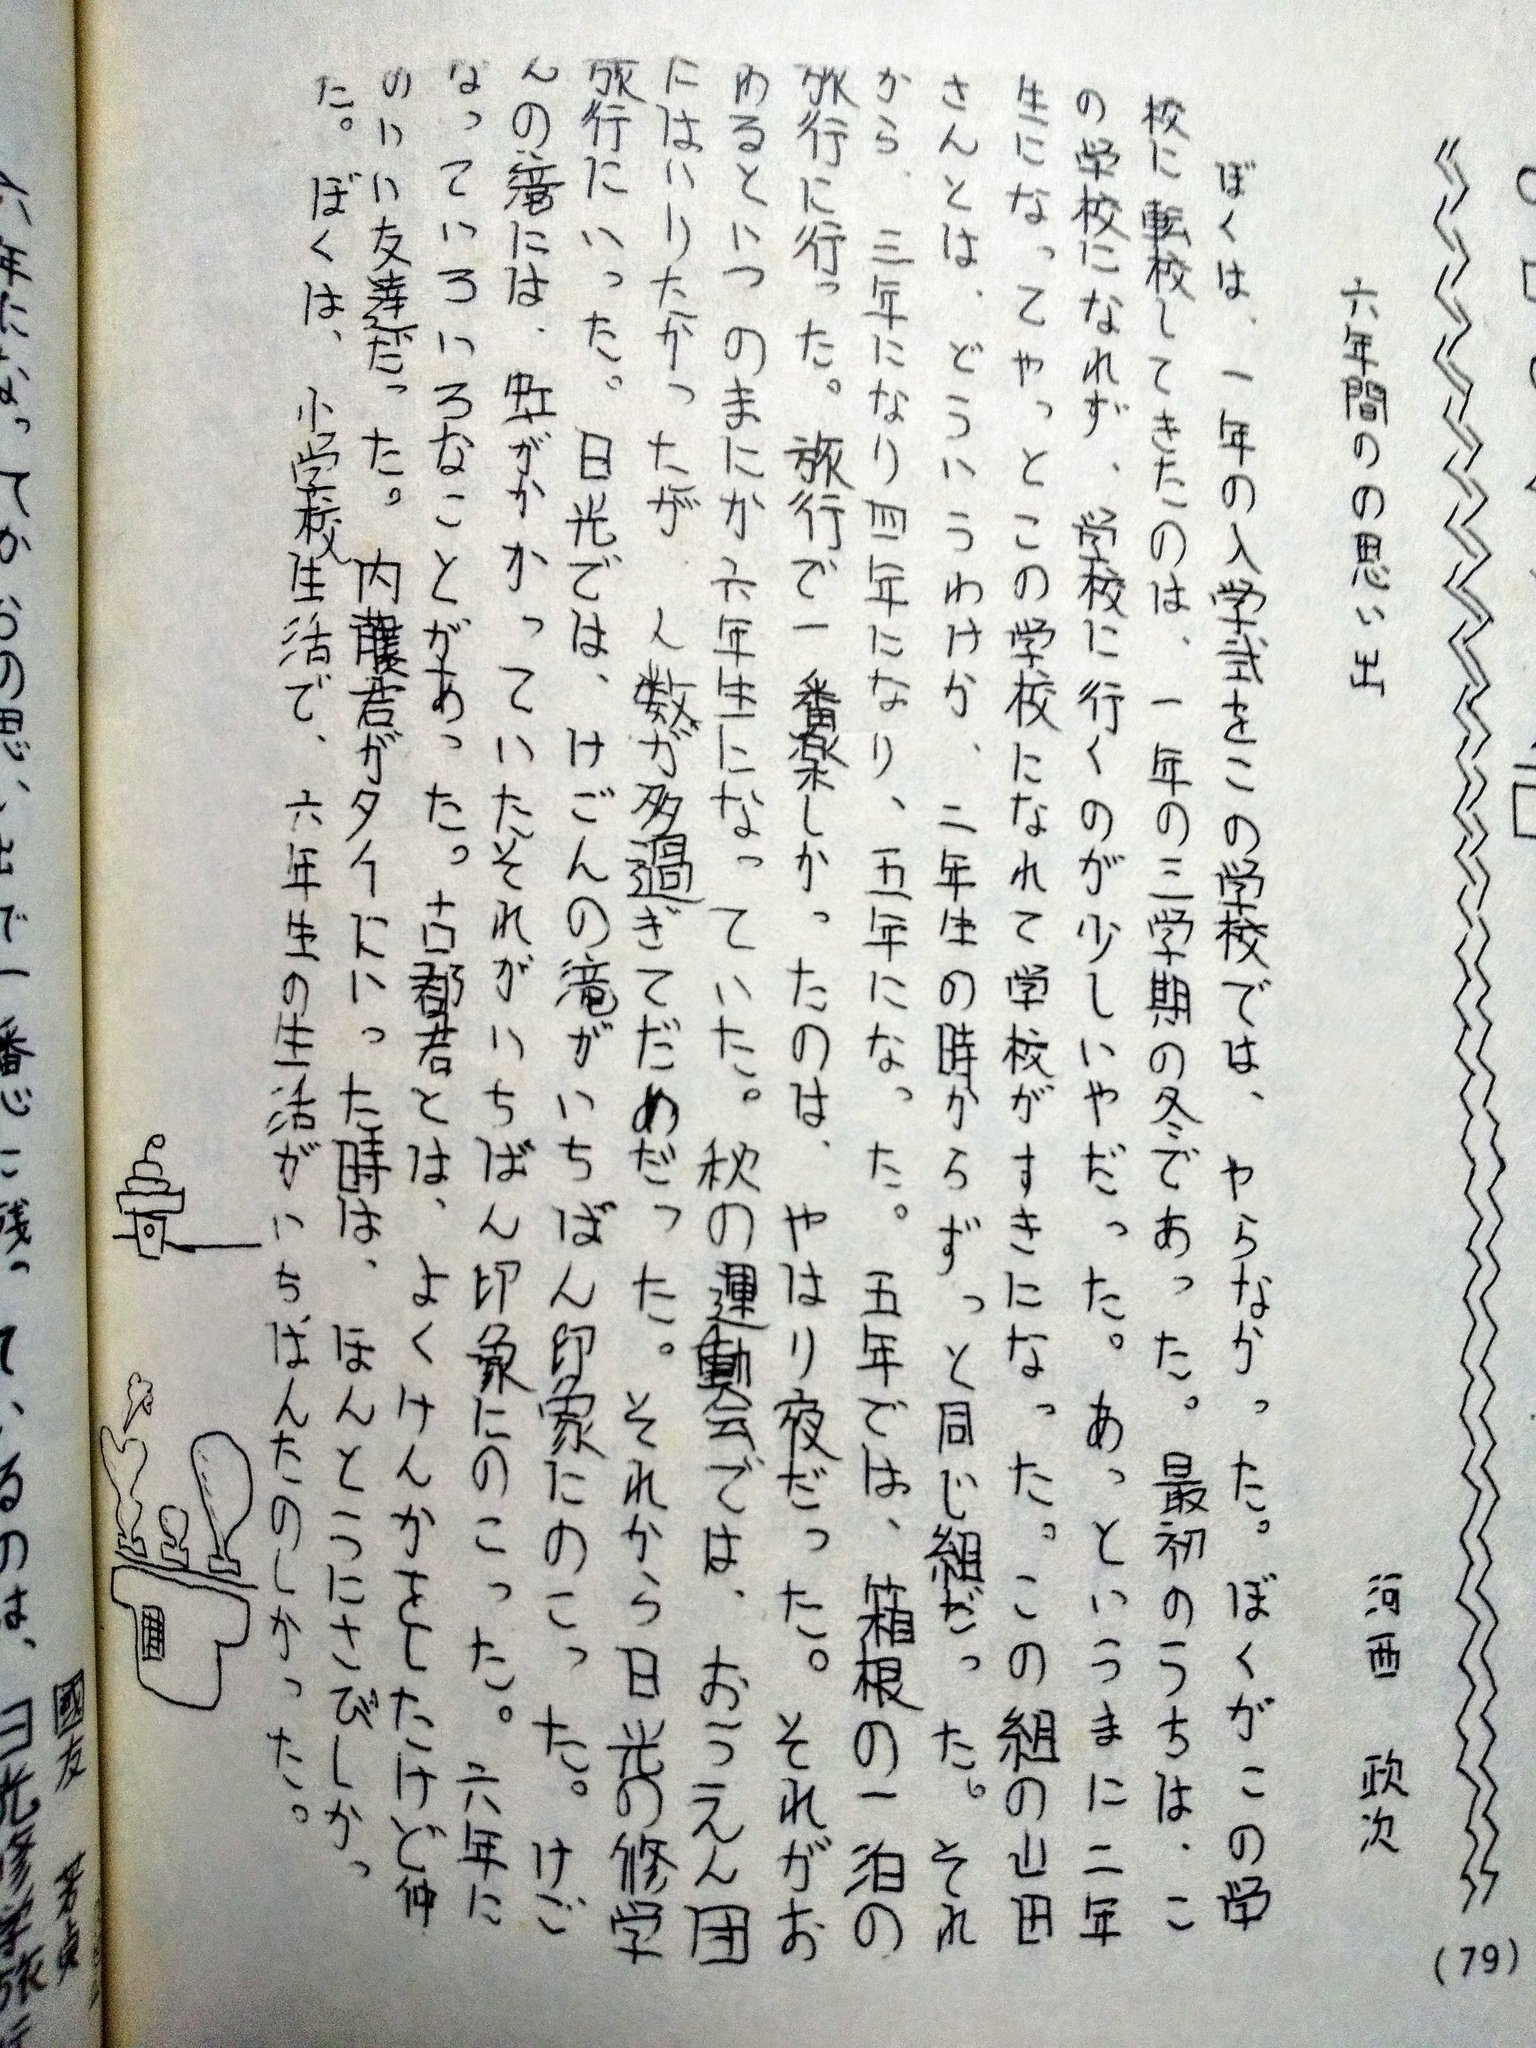 六年間のの思い出
河西 政次
ぼくは、一年の入学式をこの学校では、やらなかった。ぼくがこの学
校に転校してきたのは、一年の三学期の冬であった。最初のうちは、こ
の学校になれず、学校に行くのが少しいやだった。あっというまに二年
生になってやっとこの学校になれて学校がすきになった。この組の山田
さんとは、どういうわけか、二年生の時からずっと同じ組だった。それ
から、三年になり四年になり、五年になった。五年では、箱根の一泊の
旅行に行った。旅行で一番楽しかったのは、やはり夜だった。それがお
わるといつのまにか六年生になっていた。秋の運動会では、おうえん団
にはいりたかったが 人数が多過ぎてだめだった。それから日光の修学
旅行にいった。日光では、けごんの滝がいちばん印象たのこった。けご
んの滝には、虹がかかっていたそれがいちばん印象にのこった。六年に
なっていろいろなことがあった。古郡君とは、よくけんかをしたけど仲
のいい友達だった。内藤君がタイにいった時は、ほんとうにさびしかっ
た。ぼくは、小学校生活で、六年生の生活がいちばんたのしかった。
(79)
國友
六年になってからの思い出で一番心に残っているのは、日光修学旅行